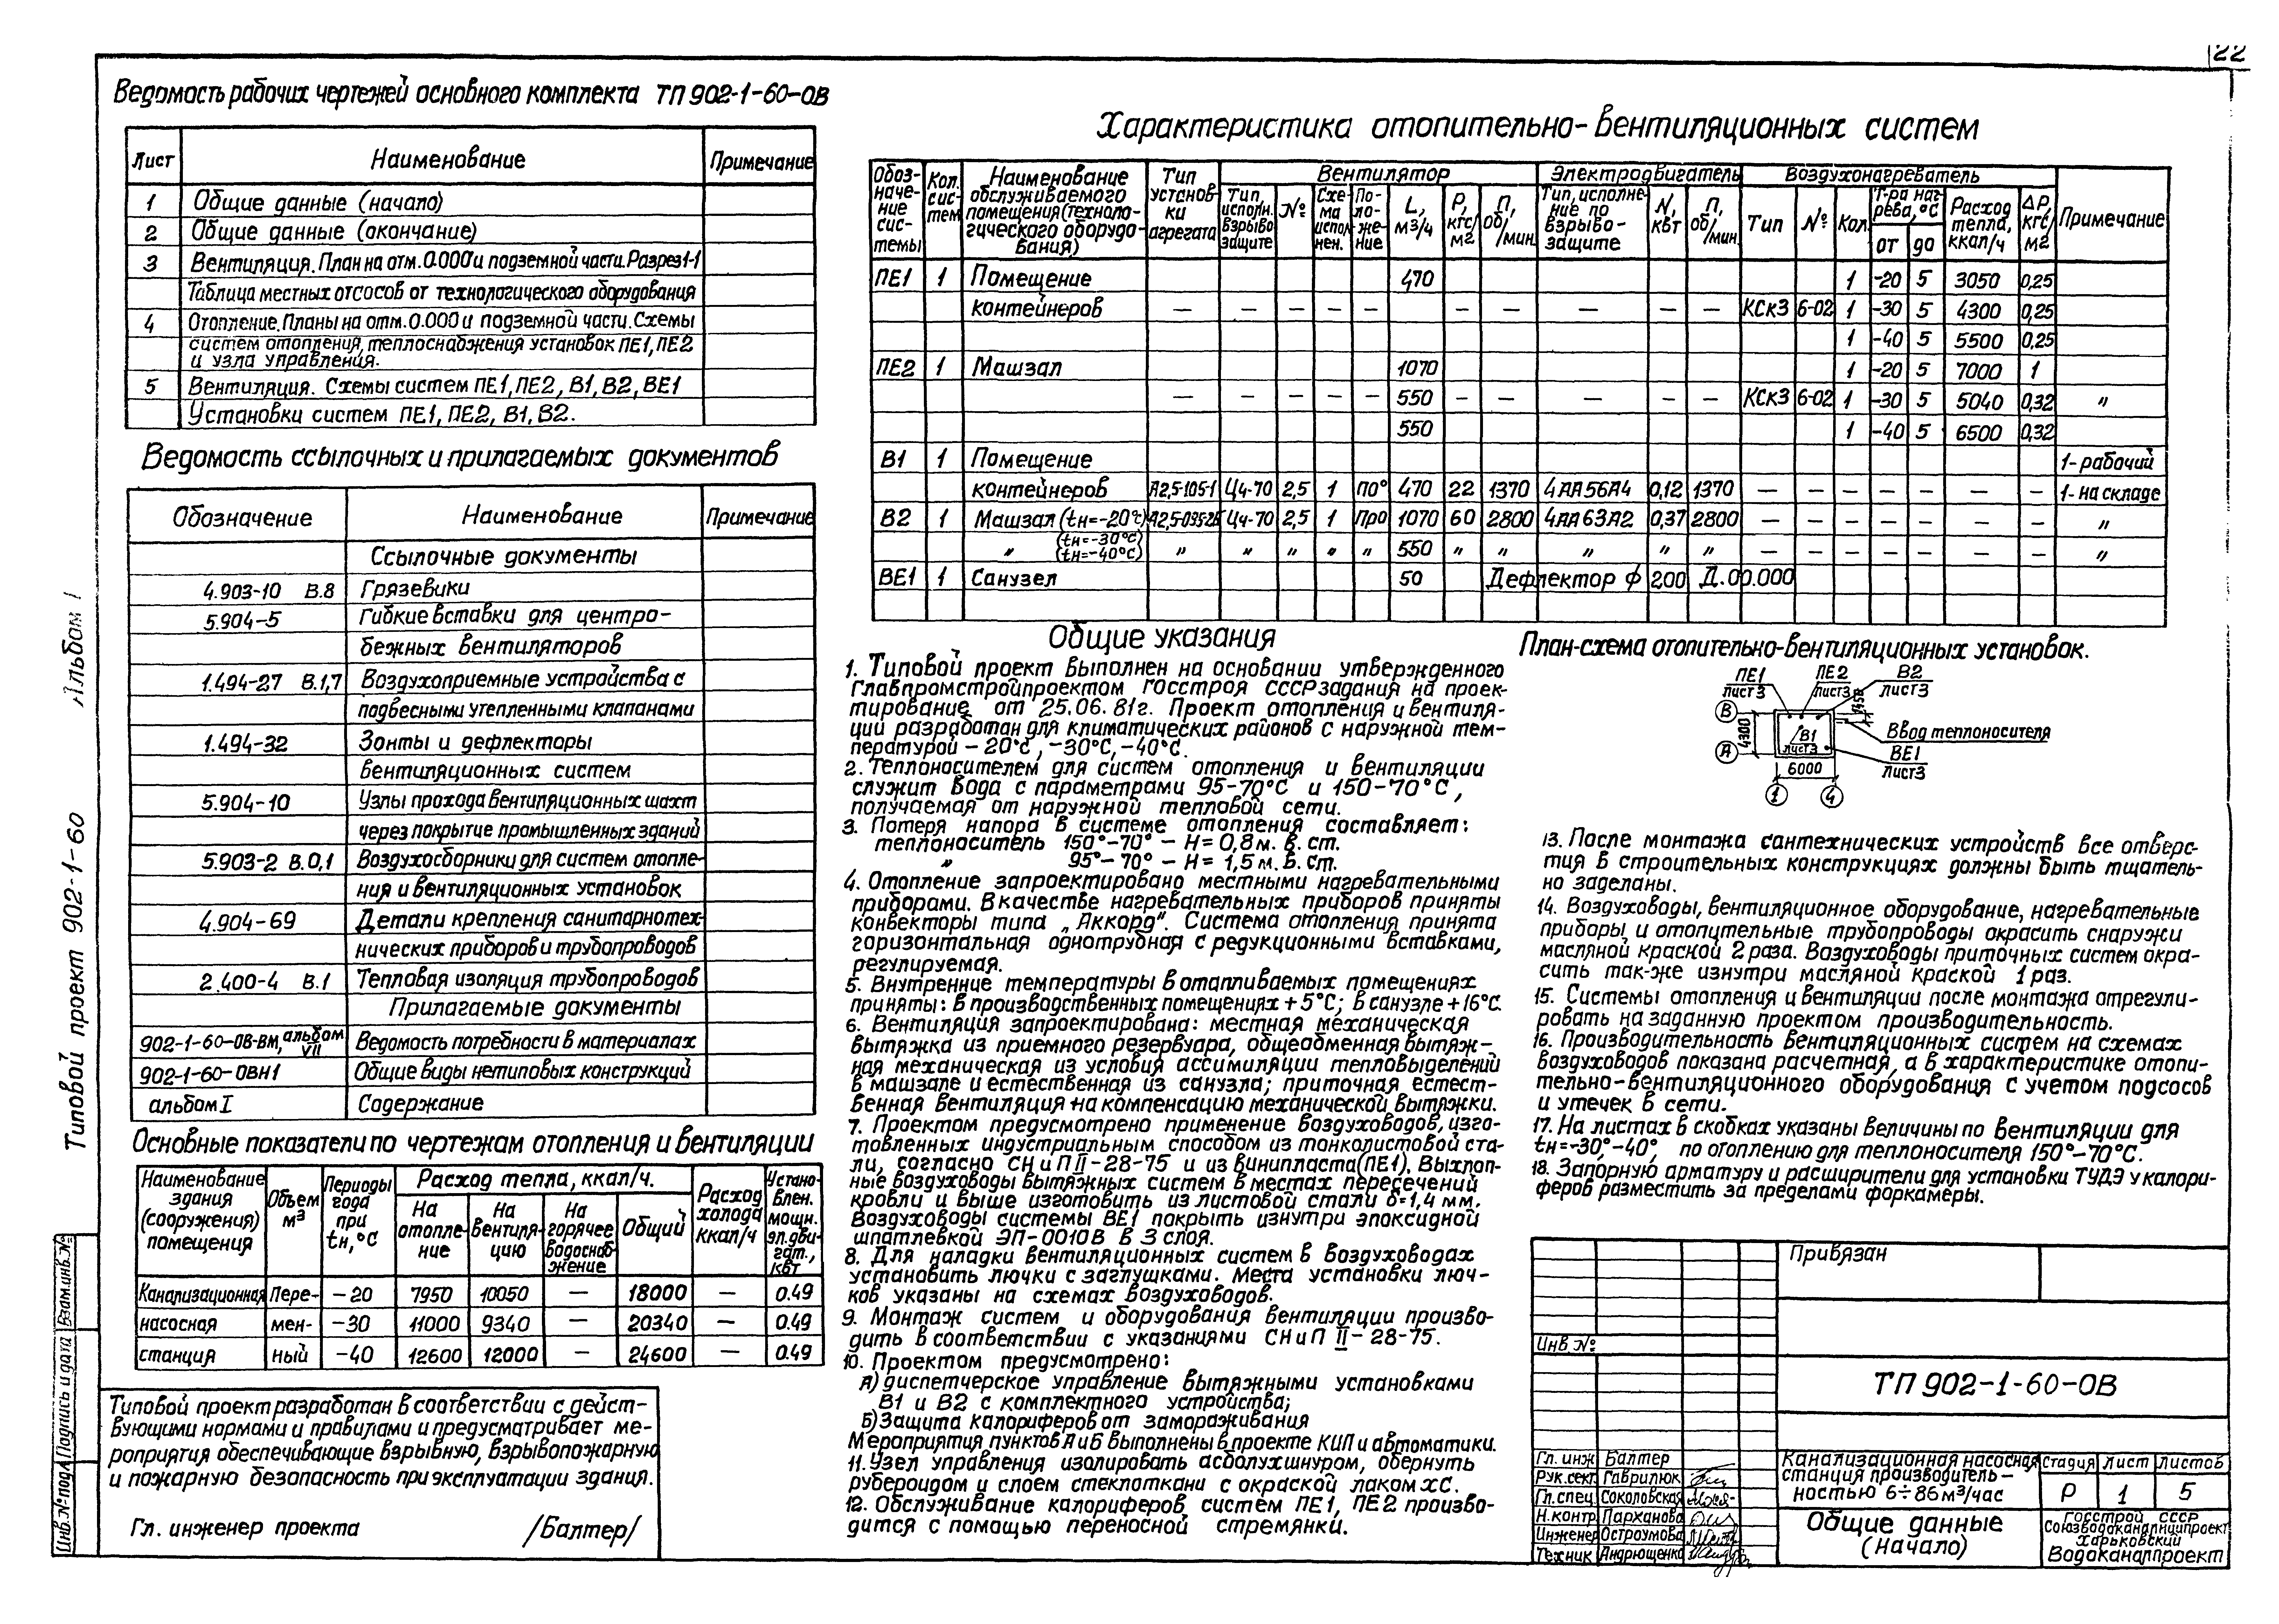 22
Ведомость рабочих чертежей основного комплекта ТП 902-1-60-ОВ
Лист Наименование Примечание
1 Общие данные (начало)
2 Общие данные (окончание)
3 Вентиляция. План на отм. 0.000 и подземной части. Разрез 1-1
Таблица местных отсосов от технологического оборудования
4 Отопление. Планы на отм. 0.000 и подземной части. Схемы
систем отопления, теплоснабжения установок ПЕ1, ПЕ2
и узла управления.
5 Вентиляция. Схемы систем ПЕ1, ПЕ2, В1, В2, ВЕ1
Установки систем ПЕ1, ПЕ2, В1, В2.
Ведомость ссылочных и прилагаемых документов
Обозначение Наименование Примечание
Ссылочные документы
4.903-10 В.8 Грязевики
5.904-5 Гибкие вставки для центро-
бежных вентиляторов
1.494-27 В.1,7 Воздухоприемные устройства с
подвесными утепленными клапанами
1.494-32 Зонты и дефлекторы
вентиляционных систем
5.904-10 Узлы прохода вентиляционных шахт
через покрытие промышленных зданий
5.903-2 В.0,1 Воздухосборники для систем отопле-
ния и вентиляционных установок
4.904-69 Детали крепления санитарнотех-
нических приборов и трубопроводов
2.400-4 В.1 Тепловая изоляция трубопроводов
Прилагаемые документы
902-1-60-ОВ-ВМ, альбом VII Ведомость потребности в материалах
902-1-60-ОВН1 Общие виды нетиповых конструкций
альбом I Содержание
Основные показатели по чертежам отопления и вентиляции
Наименование здания (сооружения) помещения Объем м³ Периоды года при tн, °С Расход тепла, ккал/ч. Расход холода ккал/ч Установлен. мощн. эл. двигат., квт
На отопление На вентиляцию На горячее водоснабжение Общий
Канализационная Пере- -20 7950 10050 — 18000 — 0.49
насосная мен- -30 11000 9340 — 20340 — 0.49
станция ный -40 12600 12000 — 24600 — 0.49
Типовой проект разработан в соответствии с дейст-
вующими нормами и правилами и предусматривает ме-
роприятия обеспечивающие взрывную, взрывопожарную
и пожарную безопасность при эксплуатации здания.
Гл. инженер проекта /Балтер/
Альбом I
Типовой проект 902-1-60
Взам.инв.№
Подпись и дата
Инв.№ подл.
Характеристика отопительно-вентиляционных систем
Обозначение системы Кол. систем Наименование обслуживаемого помещения (технологического оборудования) Тип установки агрегата Вентилятор Электродвигатель Воздухонагреватель Примечание
Тип, исполн. взрывозащите № Схема исполнен. Положение L, м³/ч P, кгс/м2 П, об/мин. Тип, исполнение по взрывозащите N, квт П, об/мин. Тип № Кол. Т-ра нагрева, °С от до Расход тепла, ккал/ч ΔP, кгс/м2
ПЕ1 1 Помещение 470 1 -20 5 3050 0,25
контейнеров — — — — — — — — — — КСк3 6-02 1 -30 5 4300 0,25
1 -40 5 5500 0,25
ПЕ2 1 Машзал 1070 1 -20 5 7000 1
— — — — — 550 — — — — — КСк3 6-02 1 -30 5 5040 0,32 "
550 1 -40 5 6500 0,32
В1 1 Помещение 1-рабочий
контейнеров А2,5-105-1 Ц4-70 2,5 1 П0° 470 22 1370 4АА56А4 0,12 1370 — — — — — — — 1-на складе
В2 1 Машзал (tн=-20°С) Ц4-70 2,5 1 Пр0 1070 60 2800 4АА63А2 0,37 2800 — — — — — — — "
" (tн=-30°С) (tн=-40°С) " " " " " 550 " " " " " — — — — — — — "
ВЕ1 1 Санузел 50 Дефлектор ф 200 Д.00.000
Общие указания
1. Типовой проект выполнен на основании утвержденного
Главпромстройпроектом Госстроя СССР задания на проек-
тирование от 25.06.81г. Проект отопления и вентиля-
ции разработан для климатических районов с наружной тем-
пературой -20°С, -30°С, -40°С.
2. Теплоносителем для систем отопления и вентиляции
служит вода с параметрами 95-70°С и 150-70°С,
получаемая от наружной тепловой сети.
3. Потеря напора в системе отопления составляет:
теплоноситель 150°-70° - Н=0,8 м. в. ст.
" 95°-70° - Н=1,5 м. в. ст.
4. Отопление запроектировано местными нагревательными
приборами. В качестве нагревательных приборов приняты
конвекторы типа „Аккорд". Система отопления принята
горизонтальная однотрубная с редукционными вставками,
регулируемая.
5. Внутренние температуры в отапливаемых помещениях
приняты: в производственных помещениях +5°С; в санузле +16°С.
6. Вентиляция запроектирована: местная механическая
вытяжка из приемного резервуара, общеобменная вытяж-
ная механическая из условия ассимиляции тепловыделений
в машзале и естественная из санузла; приточная естест-
венная вентиляция на компенсацию механической вытяжки.
7. Проектом предусмотрено применение воздуховодов, изго-
товленных индустриальным способом из тонколистовой ста-
ли, согласно СНиП II-28-75 и из винипласта (ПЕ1). Выхлоп-
ные воздуховоды вытяжных систем в местах пересечений
кровли и выше изготовить из листовой стали δ=1,4 мм.
Воздуховоды системы ВЕ1 покрыть изнутри эпоксидной
шпатлевкой ЭП-0010 В В 3 слоя.
8. Для наладки вентиляционных систем в воздуховодах
установить лючки с заглушками. Места установки люч-
ков указаны на схемах воздуховодов.
9. Монтаж систем и оборудования вентиляции произво-
дить в соответствии с указаниями СНиП II-28-75.
10. Проектом предусмотрено:
А) диспетчерское управление вытяжными установками
В1 и В2 с комплектного устройства;
Б) Защита калориферов от замораживания
Мероприятия пунктов А и Б выполнены в проекте КИП и автоматики.
11. Узел управления изолировать асболухшнуром, обернуть
рубероидом и слоем стеклоткани с окраской лаком ХС.
12. Обслуживание калориферов систем ПЕ1, ПЕ2 произво-
дится с помощью переносной стремянки.
План-схема отопительно-вентиляционных установок.
ПЕ1 лист3 ПЕ2 лист3 В2 лист3
В А 4300 В1 лист3
Ввод теплоносителя
ВЕ1 лист3
6000
1 4
13. После монтажа сантехнических устройств все отверс-
тия в строительных конструкциях должны быть тщатель-
но заделаны.
14. Воздуховоды, вентиляционное оборудование, нагревательные
приборы, и отопительные трубопроводы окрасить снаружи
масляной краской 2 раза. Воздуховоды приточных систем окра-
сить так-же изнутри масляной краской 1 раз.
15. Системы отопления и вентиляции после монтажа отрегули-
ровать на заданную проектом производительность.
16. Производительность вентиляционных систем на схемах
воздуховодов показана расчетная, а в характеристике отопи-
тельно-вентиляционного оборудования с учетом подсосов
и утечек в сети.
17. На листах в скобках указаны величины по вентиляции для
tн=-30°,-40°, по отоплению для теплоносителя 150°-70°С.
18. Запорную арматуру и расширители для установки ТУДЭ у калори-
феров разместить за пределами форкамеры.
Привязан
Инв.№
ТП 902-1-60-ОВ
Гл. инж Балтер
Рук.сект. Гаврилюк
Гл.спец. Соколовская
Н.контр. Парханова
Инженер Остроумова
Техник Андрющенко
Канализационная насосная
станция производитель-
ностью 6÷86 м³/час
Стадия Лист Листов
Р 1 5
Общие данные
(начало)
Госстрой СССР
Союзводоканалниипроект
Харьковский
Водоканалпроект